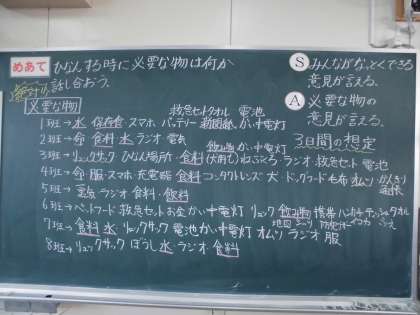 めあて ひなんする時に必要な物は何か
話し合おう。
S みんながなっとくできる
意見が言える。
A 必要な物の
意見が言える。
3日間の想定
必要な物
救急セット タオル 電池
1班→水 保存食 スマホ バッテリー 新聞紙 かい中電灯
2班→命 食料 水 ラジオ 電気
飲み物 かい中電灯
3班→リュックサック ひなん場所 食料 ねごころ ラジオ 救急セット 電池
4班→命 服 スマホ 充電器 食料 コンタクトレンズ 犬 ドッグフード 毛布 オムツ かんきり
5班→ 気 ラジオ 食料 飲料
6班→ペットフード 救急セット お金 かい中電灯 リュック 飲み物 携帯 ハンカチ ティッシュ タオル
地図
7班→食料 水 リュックサック 電池 かい中電灯 オムツ ラジオ 服
8班→リュックサック ぼうし 水 ラジオ 食料